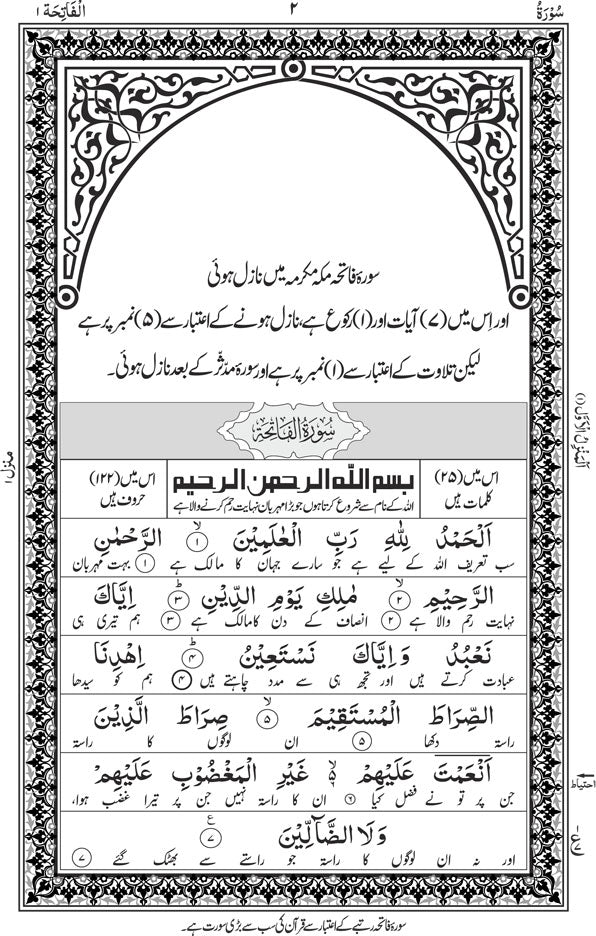 سُوْرَةُ ٢ اَلْفَاتِحَة ١
سورۂ فاتحہ مکہ مکرمہ میں نازل ہوئی
اور اِس میں (۷) آیات اور (۱) رکوع ہے، نازل ہونے کے اعتبار سے (۵) نمبر پر ہے
لیکن تلاوت کے اعتبار سے (۱) نمبر پر ہے اور سورہ مدّثّر کے بعد نازل ہوئی۔
سُوْرَةُ الْفَاتِحَة
اس میں (۲۵) کلمات ہیں
بسم الله الرحمن الرحيم
اللہ کے نام سے شروع کرتا ہوں جو بڑا مہربان نہایت رحم کرنے والا ہے
اس میں (۱۲۲) حروف ہیں
اَلْحَمْدُ لِلّٰهِ رَبِّ الْعٰلَمِيْنَ ۙ﴿۱﴾ الرَّحْمٰنِ
سب تعریف اللہ کے لیے ہے جو سارے جہان کا مالک ہے ۱ بہت مہربان
الرَّحِيْمِ ۙ﴿۲﴾ مٰلِكِ يَوْمِ الدِّيْنِ ؕ﴿۳﴾ اِيَّاكَ
نہایت رحم والا ہے ۲ انصاف کے دن کا مالک ہے ۳ ہم تیری ہی
نَعْبُدُ وَاِيَّاكَ نَسْتَعِيْنُ ؕ﴿۴﴾ اِهْدِنَا
عبادت کرتے ہیں اور تجھ ہی سے مدد چاہتے ہیں ۴ ہم کو سیدھا
الصِّرَاطَ الْمُسْتَقِيْمَ ۙ﴿۵﴾ صِرَاطَ الَّذِيْنَ
راستہ دکھا ۵ ان لوگوں کا راستہ
اَنْعَمْتَ عَلَيْهِمْ ۙ۬ غَيْرِ الْمَغْضُوْبِ عَلَيْهِمْ
جن پر تو نے فضل کیا ۶ ان کا راستہ نہیں جن پر تیرا غضب ہوا،
وَلَا الضَّآلِّيْنَ ﴿۷﴾ ع
اور نہ ان لوگوں کا راستہ جو راستے سے بھٹک گئے ۷
سورۂ فاتحہ رتبے کے اعتبار سے قرآن کی سب سے بڑی سورت ہے۔
اَلْمَنْزِلُ الْاَوَّلُ (۱)
احتیاط
منزل ۱